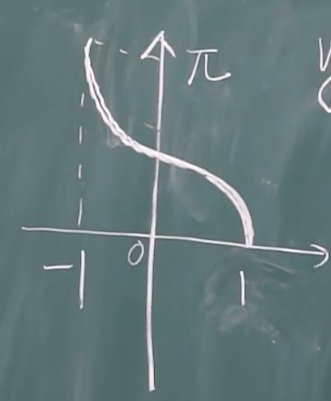 π
0
-1
1